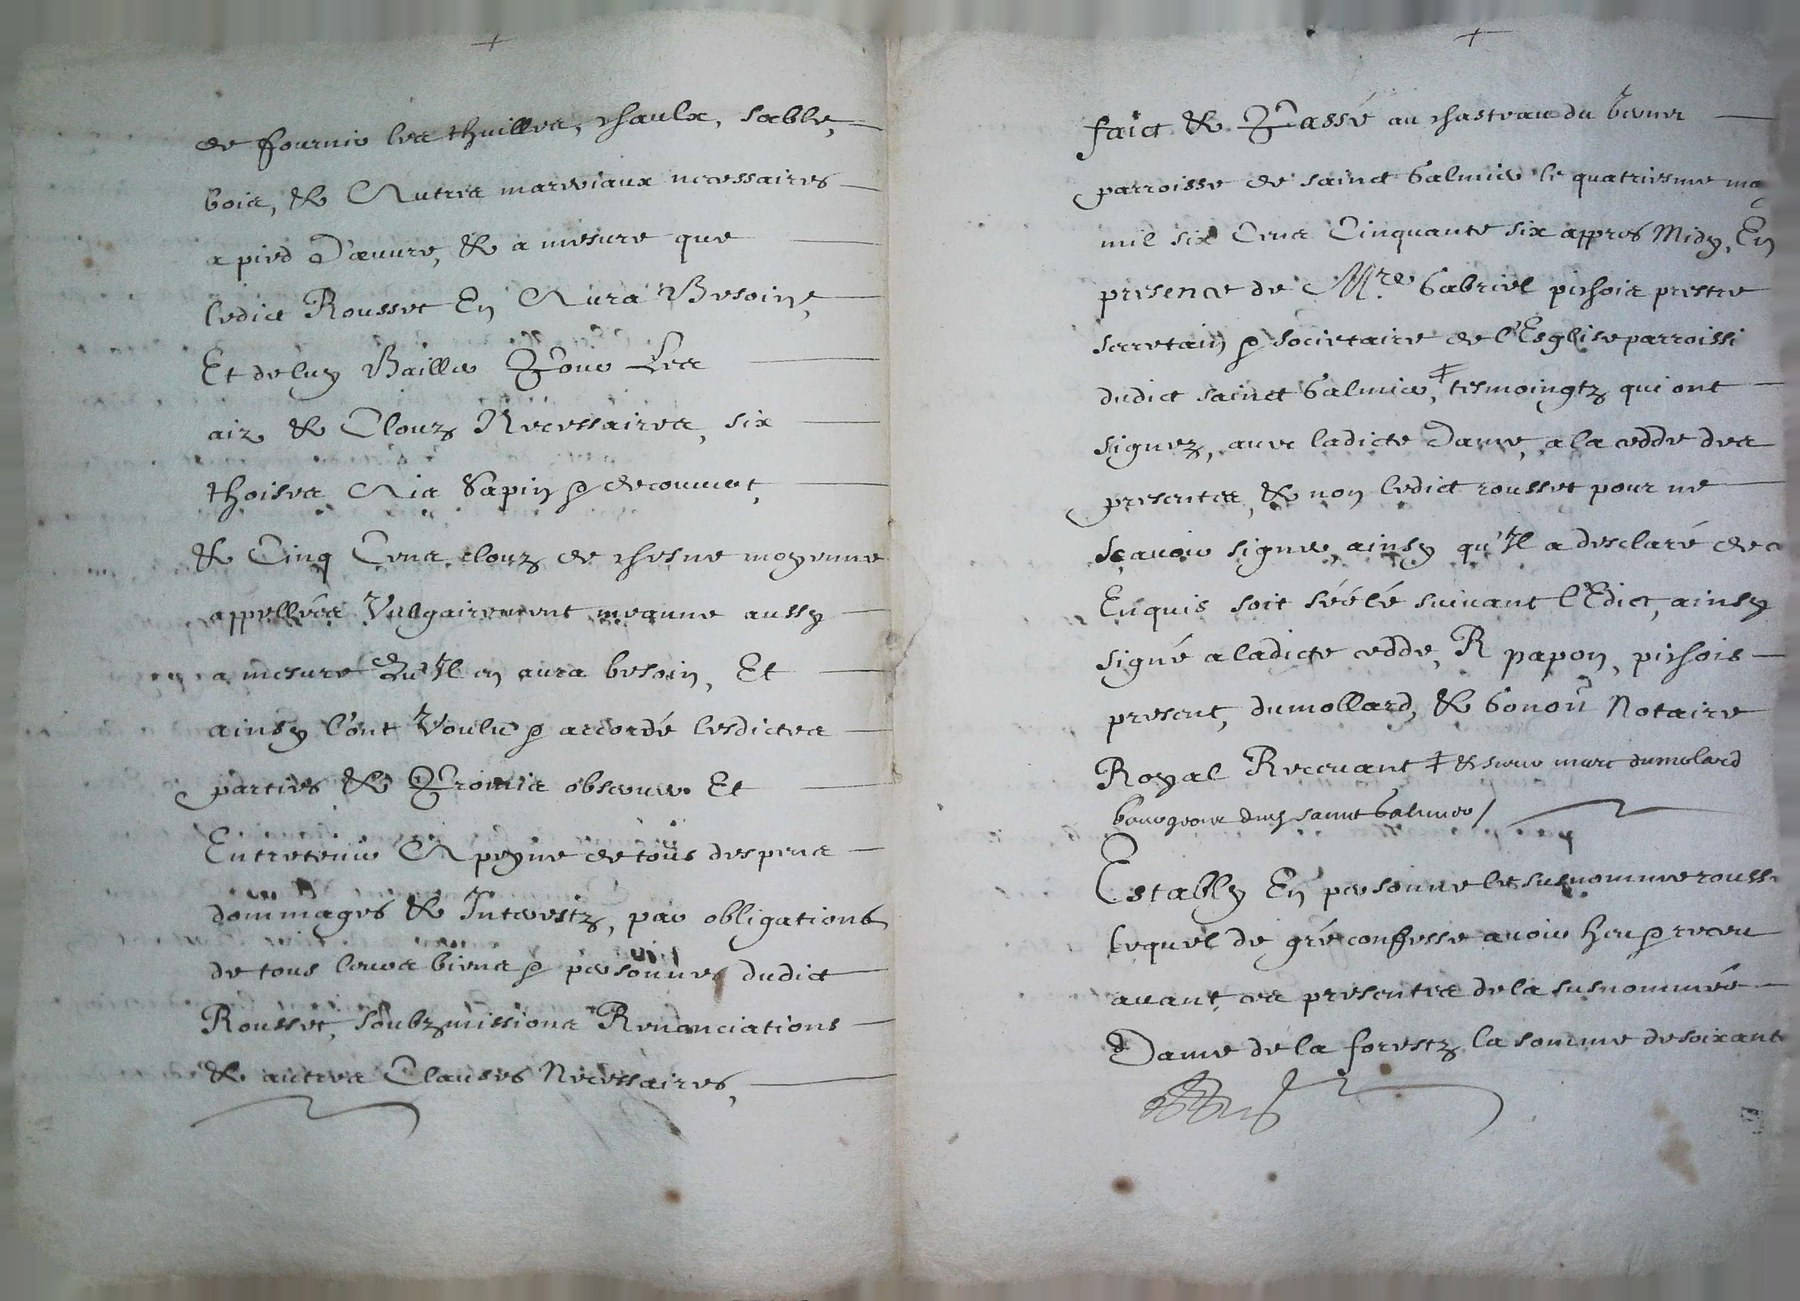 de fournir les thuilles, chaulx, sable,
bois, & Autres mareriaux necessaires
a pied D'œuvre, & a mesure que
ledict Rousset En Aura Besoing,
Et de luy Bailler Pour Les
aiz & Clouz Necessaires, six
thoises Ais Sapin & de couvert,
& Cinq Cens clouz de chesne moyenne
appellées Vulgairement meanne aussy
a mesure Qu'Il en aura besoin, Et
ainsy l'ont Voulu & accordé lesdictes
parties & Promis observer Et
Entretenir A peyne de tous despens
dommages & Interestz, par obligations
de tous leurs biens & personnes dudict
Rousset, soubzmissions Renonciations
& autres Clauses Necessaires,
faict & Passé au chasteau du Verney
parroisse de sainct Galmier le quatriesme may
mil six Cens Cinquante six appres Midy, En
presence de Mre Gabriel pichois prestre
secretain & societaire de l'Esglise parroissi
dudict sainct Galmier, ǂ tesmoingtz qui ont
signez, avec ladicte Dame, a la cedde des
presentes, & non ledict rousset pour ne
sçavoir signer, ainsy qu'Il a desclaré de ce
Enquis soit séélé suivant l'Edict, ainsy
signé a ladicte cedde, R papon, pichois
present, dumollard, & Gonon Notaire
Royal Recevant ǂ & sieur marc dumolard
bourgeois dud saint Galmier /
Estably En personne le susnomme rousse
lequel de gré confesse avoir heu & receu
avant ces presentes de la susnommée
Dame de la forestz la somme de soixante